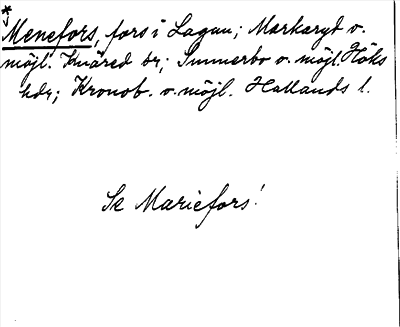 * Menefors, fors i Lagan; Markaryd o.
möjl. Knäred sr; Sunnerbo o. möjl. Höks
hdr; Kronob. o. möjl. Hallands l.
Se Mariefors!